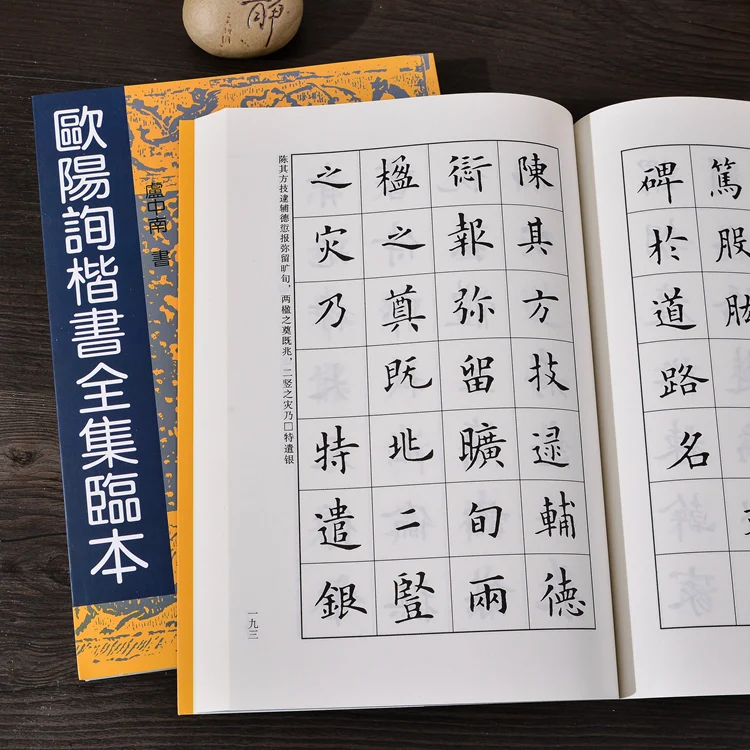 静
歐陽詢楷書全集臨本
盧中南 書
篤股肱
碑於道路名
陳其方技逯輔德
報弥留曠旬兩
楹之奠既兆二豎
之灾乃特遣銀
陈其方技逮辅德愆报弥留旷旬，两楹之奠既兆，二竖之灾乃□特遣银
一九三